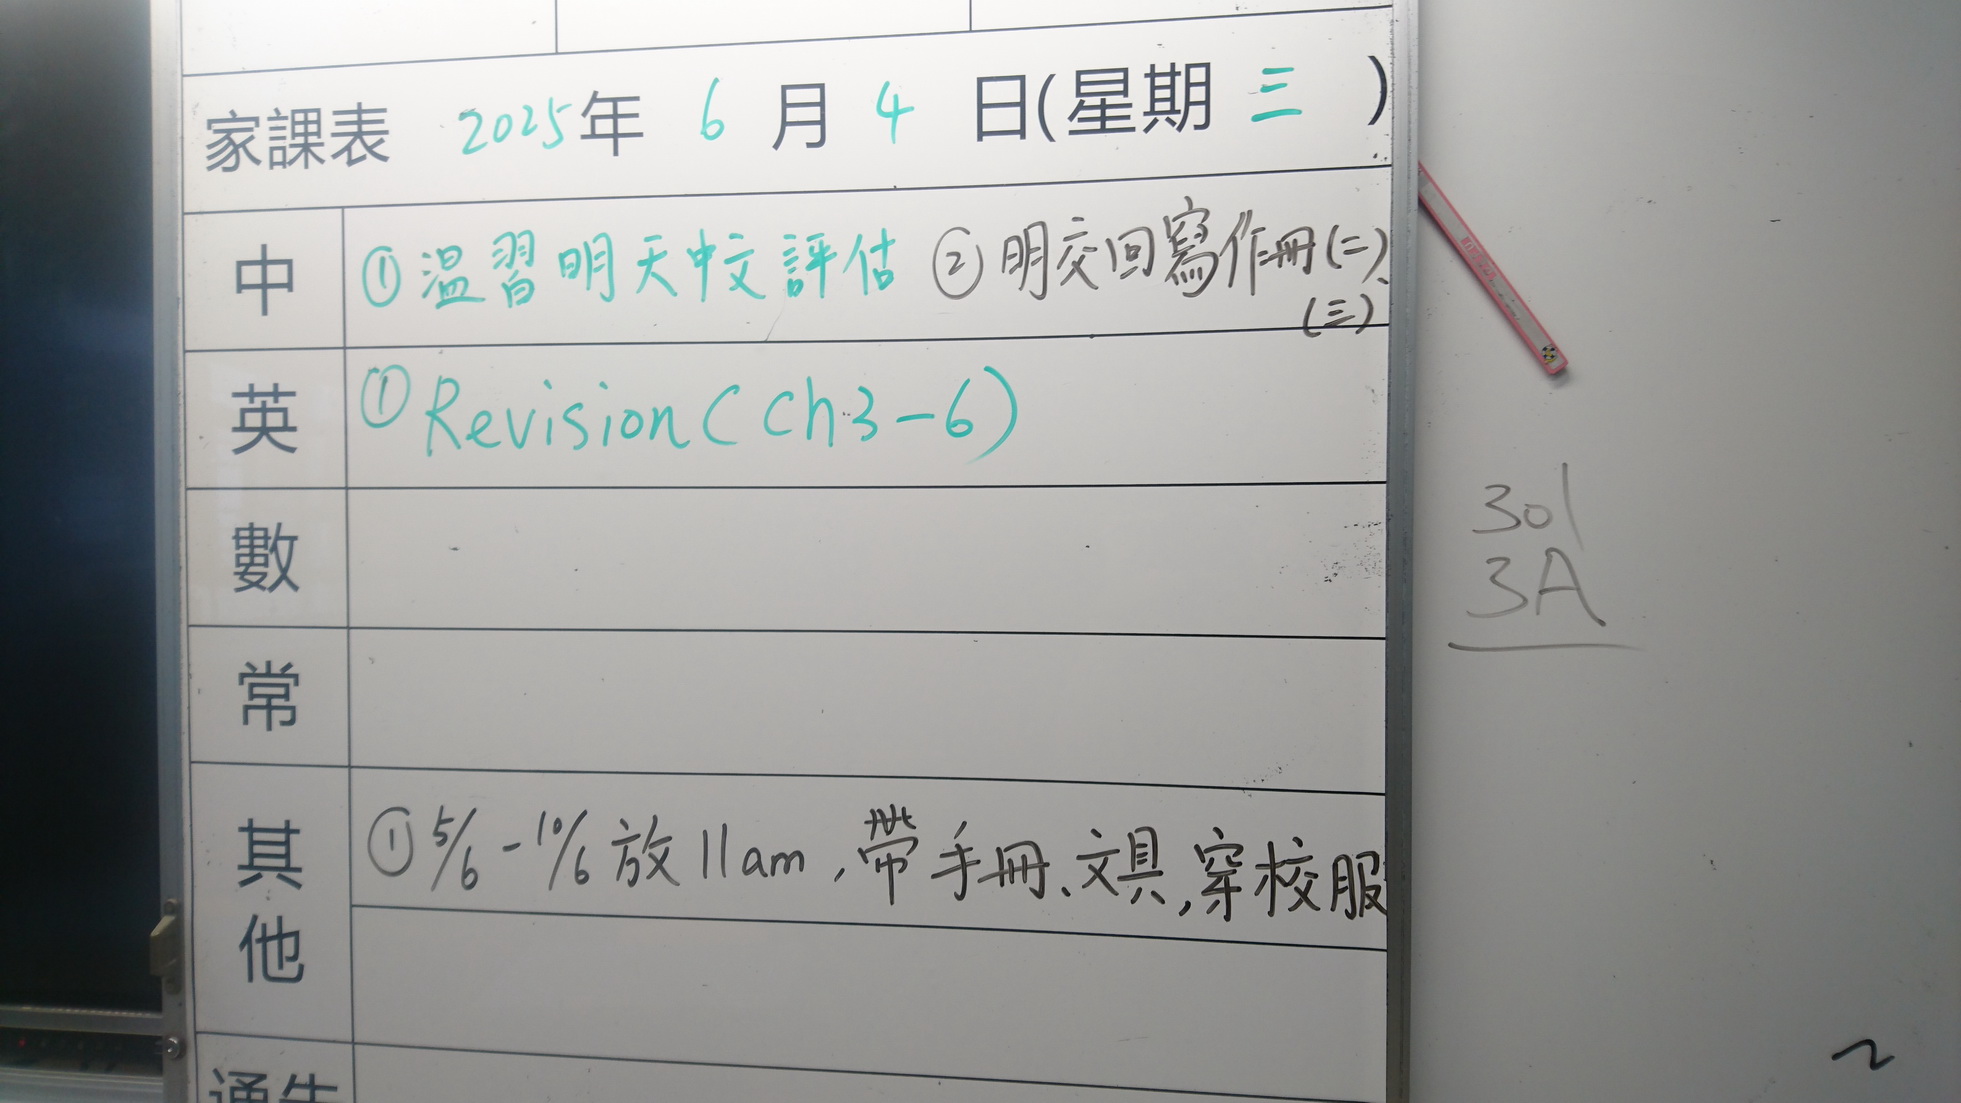 家課表 2025年 6 月 4 日(星期 三 )
中 ①溫習明天中文評估 ②明交回寫作冊(二)、
(三)
英 ①Revision(Ch3-6)
數
常
其他 ①5/6-10/6放11am,帶手冊、文具,穿校服
通告
301
3A